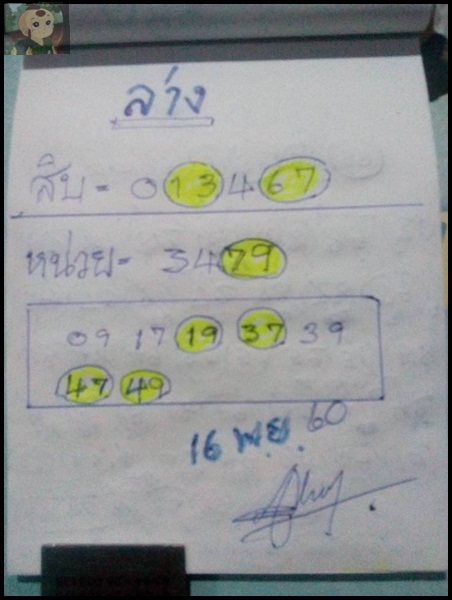 ล่าง
สิบ = 013467
หน่วย = 3479
09 17 19 37 39
47 49
16 พ.ย. 60